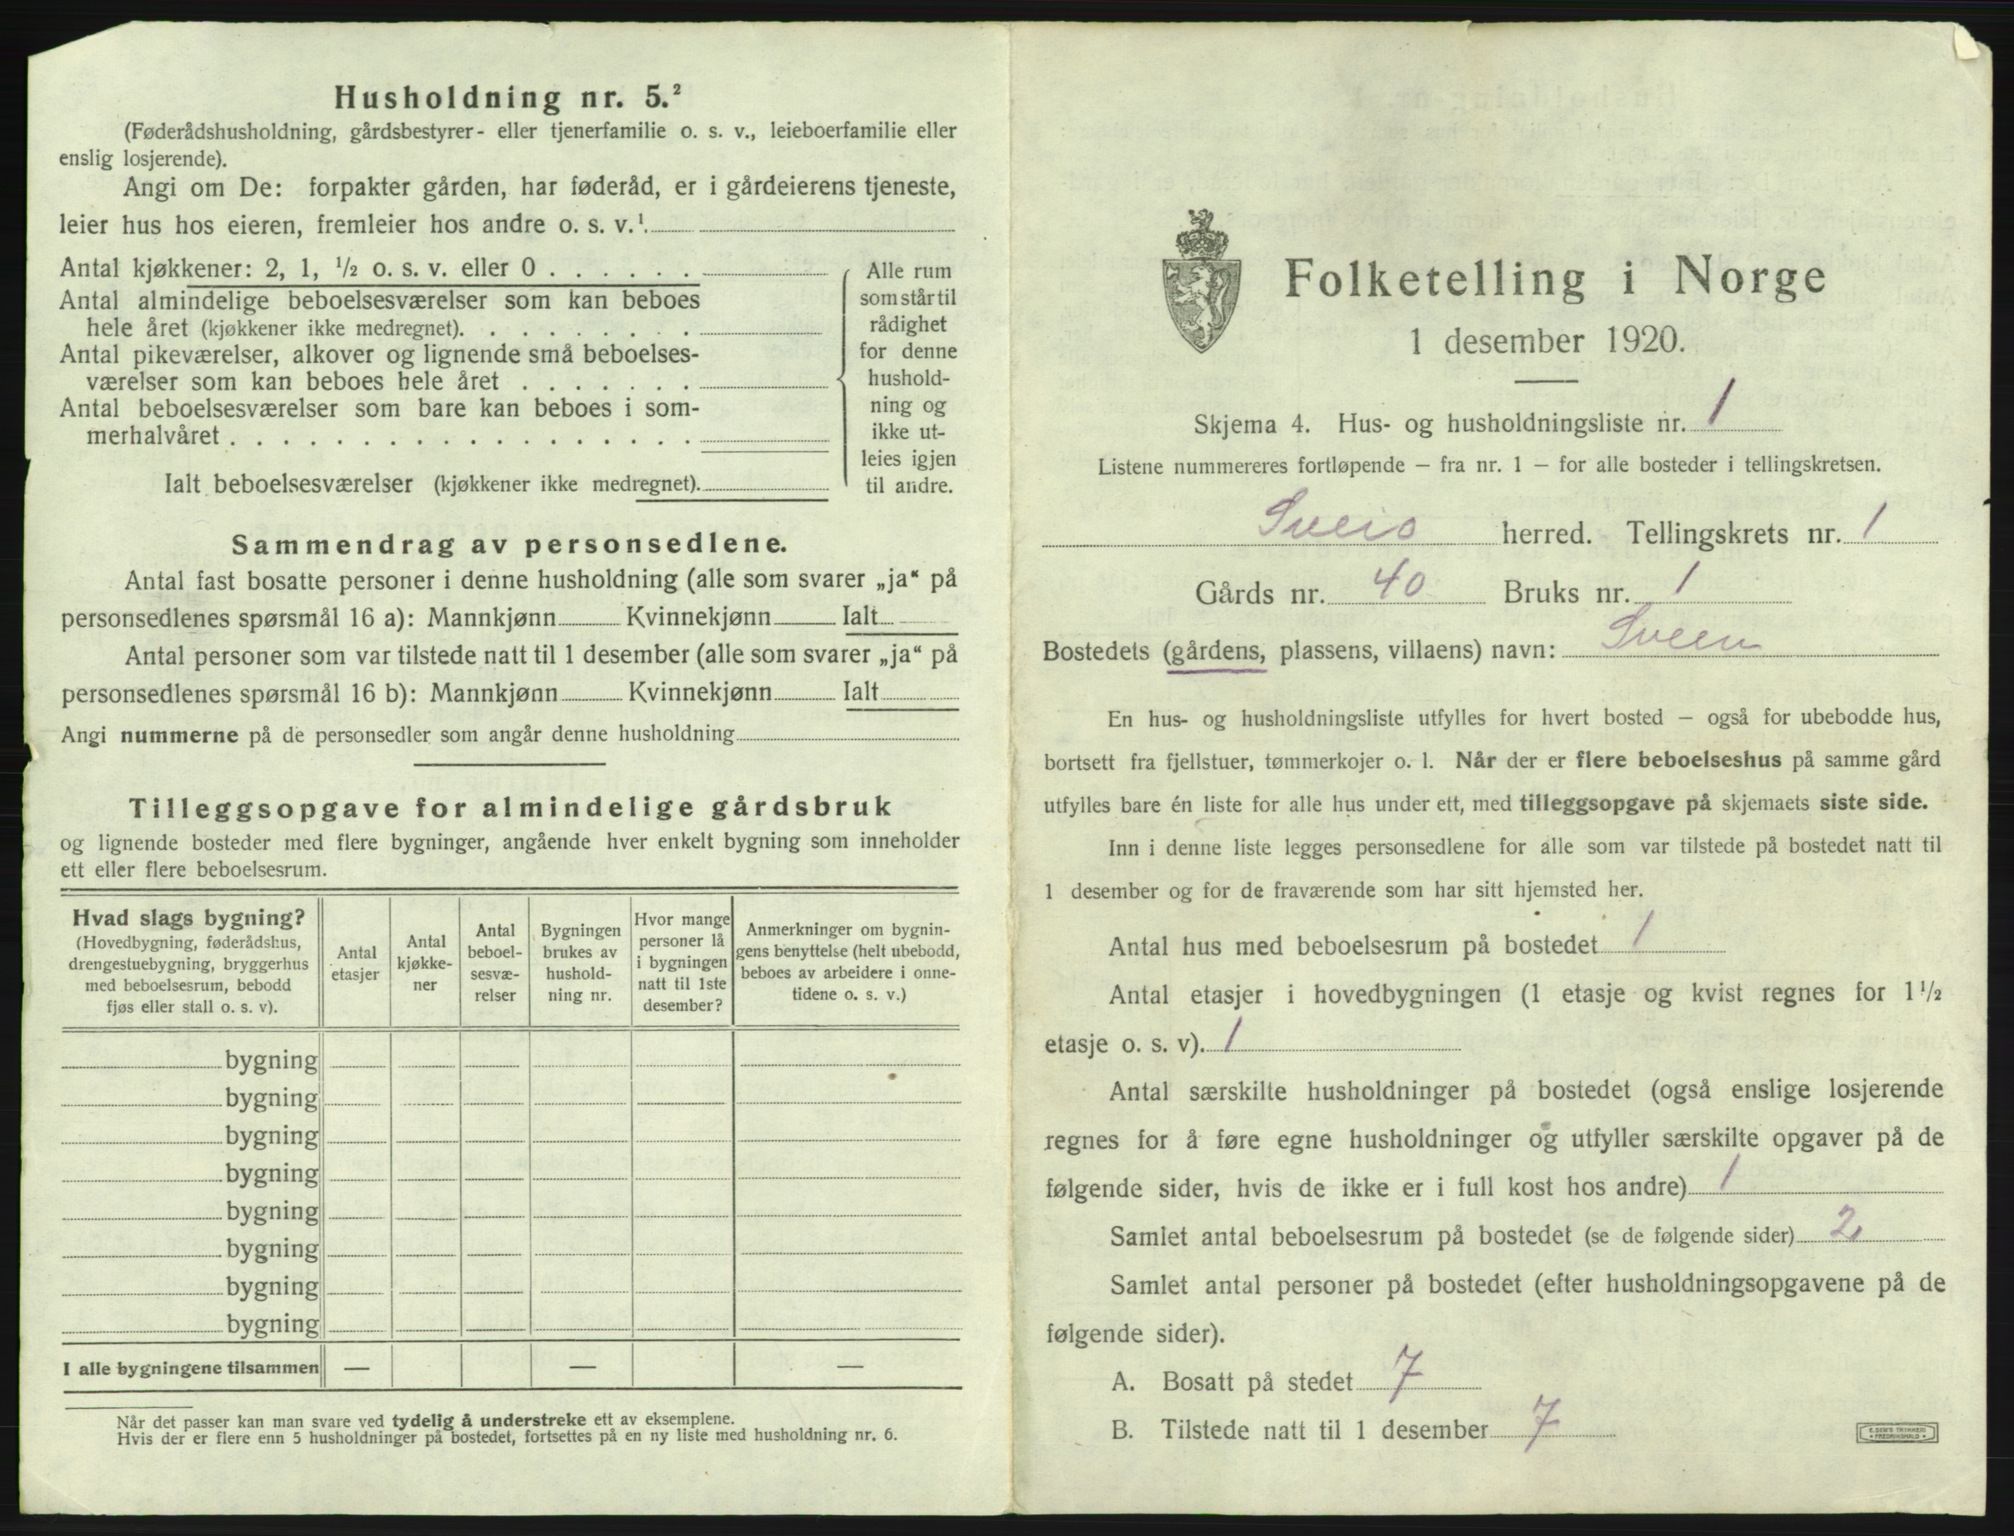 Husholdning nr. 5.²
(Føderådshusholdning, gårdsbestyrer- eller tjenerfamilie o. s. v., leieboerfamilie eller
enslig losjerende).
Angi om De: forpakter gården, har føderåd, er i gårdeierens tjeneste,
leier hus hos eieren, fremleier hos andre o. s. v.¹
Antal kjøkkener: 2, 1, ½ o. s. v. eller 0 . . . . . .
Antal almindelige beboelsesværelser som kan beboes
hele året (kjøkkener ikke medregnet). . . . . . . . .
Antal pikeværelser, alkover og lignende små beboelses-
værelser som kan beboes hele året . . . . . . .
Antal beboelsesværelser som bare kan beboes i som-
merhalvåret . . . . . . . . . . . . . . . . . .
Ialt beboelsesværelser (kjøkkener ikke medregnet).
Alle rum
som står til
rådighet
for denne
hushold-
ning og
ikke ut-
leies igjen
til andre.
Sammendrag av personsedlene.
Antal fast bosatte personer i denne husholdning (alle som svarer „ja“ på
personsedlenes spørsmål 16 a): Mannkjønn Kvinnekjønn Ialt
Antal personer som var tilstede natt til 1 desember (alle som svarer „ja“ på
personsedlenes spørsmål 16 b): Mannkjønn Kvinnekjønn Ialt
Angi nummerne på de personsedler som angår denne husholdning
Tilleggsopgave for almindelige gårdsbruk
og lignende bosteder med flere bygninger, angående hver enkelt bygning som inneholder
ett eller flere beboelsesrum.
Hvad slags bygning?
(Hovedbygning, føderådshus,
drengestuebygning, bryggerhus
med beboelsesrum, bebodd
fjøs eller stall o. s. v).
Antal
etasjer
Antal
kjøkke-
ner
Antal
beboel-
sesvæ-
relser
Bygningen
brukes av
hushold-
ning nr.
Hvor mange
personer lå
i bygningen
natt til 1ste
desember?
Anmerkninger om bygnin-
gens benyttelse (helt ubebodd,
beboes av arbeidere i onne-
tidene o. s. v.)
bygning
bygning
bygning
bygning
bygning
bygning
bygning
bygning
I alle bygningene tilsammen — — —
Når det passer kan man svare ved tydelig å understreke ett av eksemplene.
Hvis der er flere enn 5 husholdninger på bostedet, fortsettes på en ny liste med husholdning nr. 6.
Folketelling i Norge
1 desember 1920.
Skjema 4. Hus- og husholdningsliste nr. 1
Listene nummereres fortløpende — fra nr. 1 — for alle bosteder i tellingskretsen.
Sveio herred. Tellingskrets nr. 1
Gårds nr. 40 Bruks nr. 1
Bostedets (gårdens, plassens, villaens) navn: Sveen
En hus- og husholdningsliste utfylles for hvert bosted — også for ubebodde hus,
bortsett fra fjellstuer, tømmerkojer o. l. Når der er flere beboelseshus på samme gård
utfylles bare én liste for alle hus under ett, med tilleggsopgave på skjemaets siste side.
Inn i denne liste legges personsedlene for alle som var tilstede på bostedet natt til
1 desember og for de fraværende som har sitt hjemsted her.
Antal hus med beboelsesrum på bostedet 1
Antal etasjer i hovedbygningen (1 etasje og kvist regnes for 1½
etasje o. s. v). 1
Antal særskilte husholdninger på bostedet (også enslige losjerende
regnes for å føre egne husholdninger og utfyller særskilte opgaver på de
følgende sider, hvis de ikke er i full kost hos andre) 1
Samlet antal beboelsesrum på bostedet (se de følgende sider) 2
Samlet antal personer på bostedet (efter husholdningsopgavene på de
følgende sider).
A. Bosatt på stedet 7
B. Tilstede natt til 1 desember 7